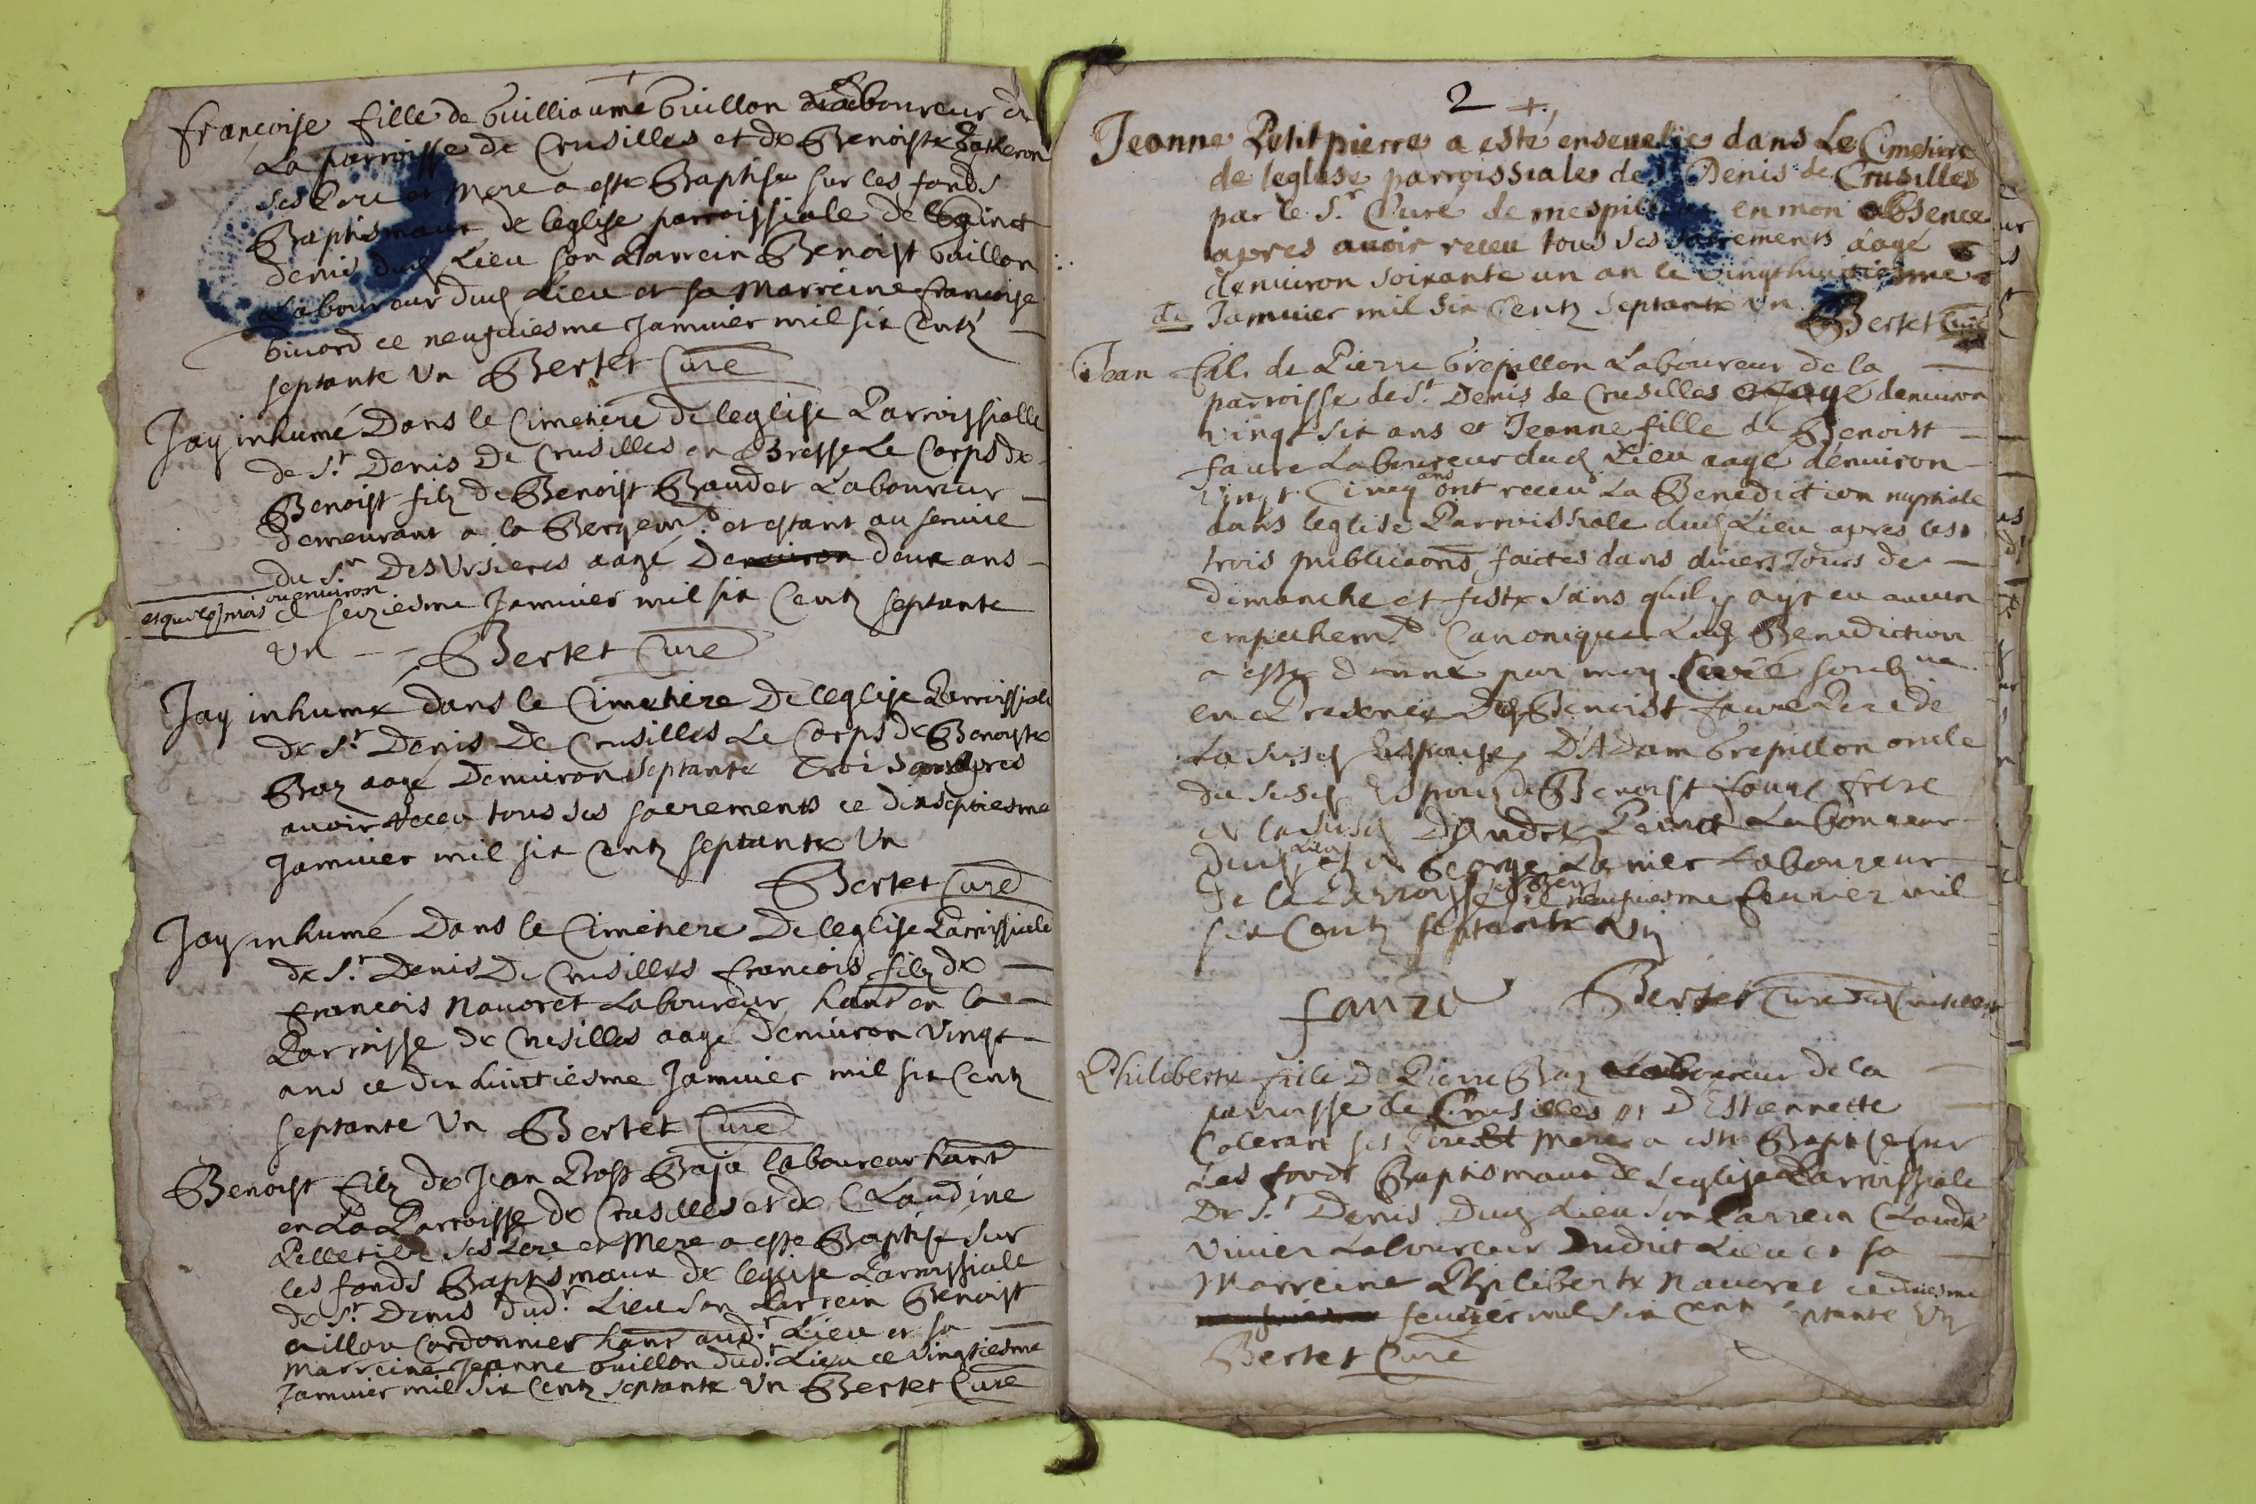 françoise fille de Guilliaume Guillon Laboureur de
La parroisse de Crusilles et de Benoiste
ses Pere et Mere a este Baptisee sur les fonds
Baptismaux de leglise parroissiale de Sainct
denis dud Lieu son Parrein Benoist Guillon
Laboureur dud Lieu et sa Marreine francoise
ce neufuiesme Januier mil six Centz
septante Un Bertet Curé
Jay inhumé Dans le Cimetiere De leglise Parroissialle
de St Denis De Crusilles en Bresse Le Corps de
Benoist filz de Benoist Baudet Laboureur
demeurant a la et estant au seruice
du Sr Des Ursieres aagé Denuiron doux ans
ou enuiron
ce seiziesme Januier mil six Centz septante
Un Bertet Curé
Jay inhume dans le Cimetiere De leglise Parroissiale
de St Denis De Crusilles Le Corps de Benoiste
Baz aagé Denuiron septante Trois ans apres
auoir Receu tous ses sacrements ce dixseptiesme
Januier mil six Centz septante Un
Bertet Curé
Jay inhumé Dans le Cimetiere De leglise Parroissiale
de St Denis De Crusilles francois filz de
francois Nauoret Laboureur hant en la
Parroisse de Crusilles aagé Denuiron Vingt
ans ce dix huictiesme Januier mil six Centz
septante Un Bertet Curé
Benoist filz de Jean Prost Baja laboureur hant
en La Parroisse de Crusilles et de Claudine
Pelletier ses Pere et Mere a este Baptise sur
les fonds Baptismaux de leglise Parroissiale
de St Denis dudt Lieu son Parrein Benoist
Guillon Cordonnier hant audt Lieu et sa
Marreine Jeanne Guillon dudt Lieu ce Vingtiesme
Januier mil six Centz septante Un Bertet Curé
2
Jeanne Petitpierre a esté enseuelie dans Le Cimetiere
de leglise parroissiale de St Denis de Crusilles
par le Sr Curé de en mon absence
apres auoir receu tous ses sacrements aagé
denuiron soixante un an le vingthuictiesme
de Januier mil six Centz septante Un
Bertet Curé
Jean fils de Pierre Grepillon Laboureur de la
parroisse de St Denis de Crusilles aagé denuiron
vingt six ans et Jeanne fille de Benoist
faure Laboureur dud Lieu aagé denuiron
vingt Cinq ans ont receu La Benediction nuptiale
dans leglise Parroissiale dud Lieu apres les
trois publicaons faictes dans diuers Jours de
dimanche et feste sans quil y ayt eu aucun
empechemt Canonique Lad Benediction
a este donné par moy Curé soub
en Presence Dud Benoist faure Pere de
La susd Espouse, D'Adam Grepillon oncle
du susd Espoux de Benoist faure frere
de la susd D'André Laboureur
dud Lieu et de George Laboureur
de la Parroisse ce neufuiesme feurier mil
six Centz septante Un
faure Bertet Curé dud Crusilles
Philiberte fille De Pierre Baz Laboureur de la
parroisse de Crusilles et D'Estiennette
ses Pere et Mere a este Baptisé sur
Les fonds Baptismaux de Leglise Parroissiale
De St Denis Dud Lieu son Parrein Claude
Viuier Laboureur Dudit Lieu et sa
Marreine Philiberte Nauoret ce dixiesme
feurier mil six Cent septante Un
Bertet Curé